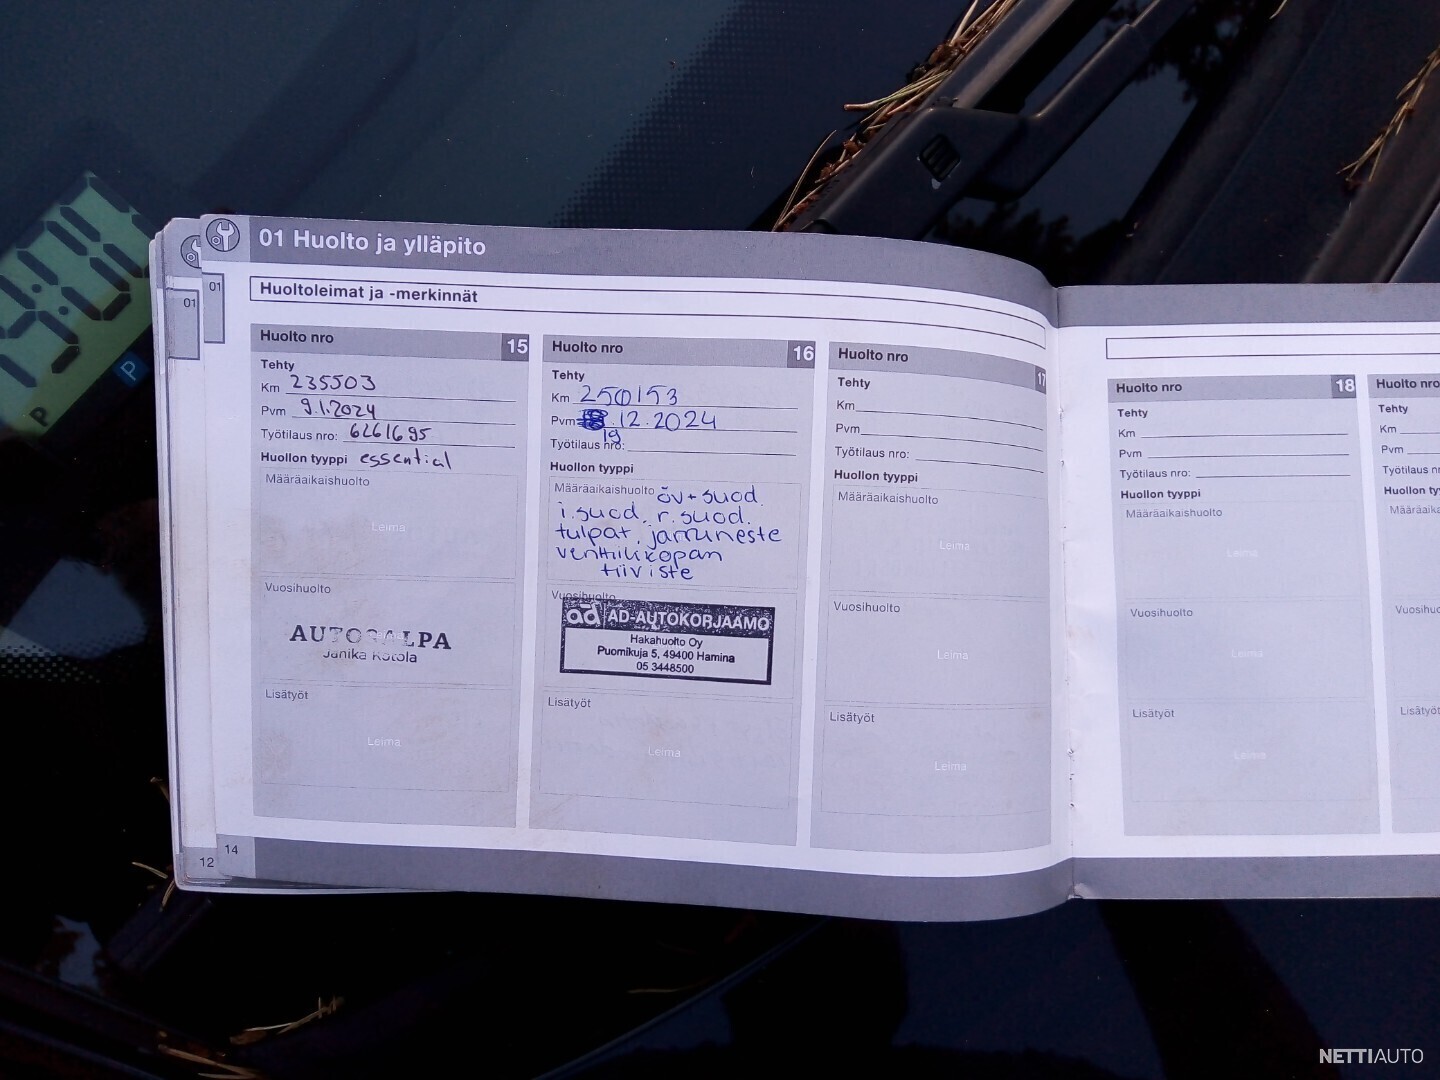 01 Huolto ja ylläpito
01
01
Huoltoleimat ja -merkinnät
Huolto nro 15
Tehty
Km 235503
Pvm 9.1.2024
Työtilaus nro: 6261695
Huollon tyyppi essential
Määräaikaishuolto
Leima
Vuosihuolto
Janika Kotola
Lisätyöt
Leima
Huolto nro 16
Tehty
Km 250153
Pvm .12.2024
19
Työtilaus nro:
Huollon tyyppi
Määräaikaishuolto öv + suod.
i.suod, r.suod.
tulpat, jarruneste
venttiilikopan
tiiviste
Vuosihuolto
ad AD-AUTOKORJAAMO
Hakahuolto Oy
Puomikuja 5, 49400 Hamina
05 3448500
Lisätyöt
Leima
Huolto nro 17
Tehty
Km
Pvm
Työtilaus nro:
Huollon tyyppi
Määräaikaishuolto
Leima
Vuosihuolto
Leima
Lisätyöt
Leima
12
14
Huolto nro 18
Tehty
Km
Pvm
Työtilaus nro:
Huollon tyyppi
Määräaikaishuolto
Leima
Vuosihuolto
Leima
Lisätyöt
Leima
Huolto nro
Tehty
Km
Pvm
Työtilaus n
Huollon ty
Määräaika
Vuosihuo
Lisätyöt
P
P
NETTIAUTO